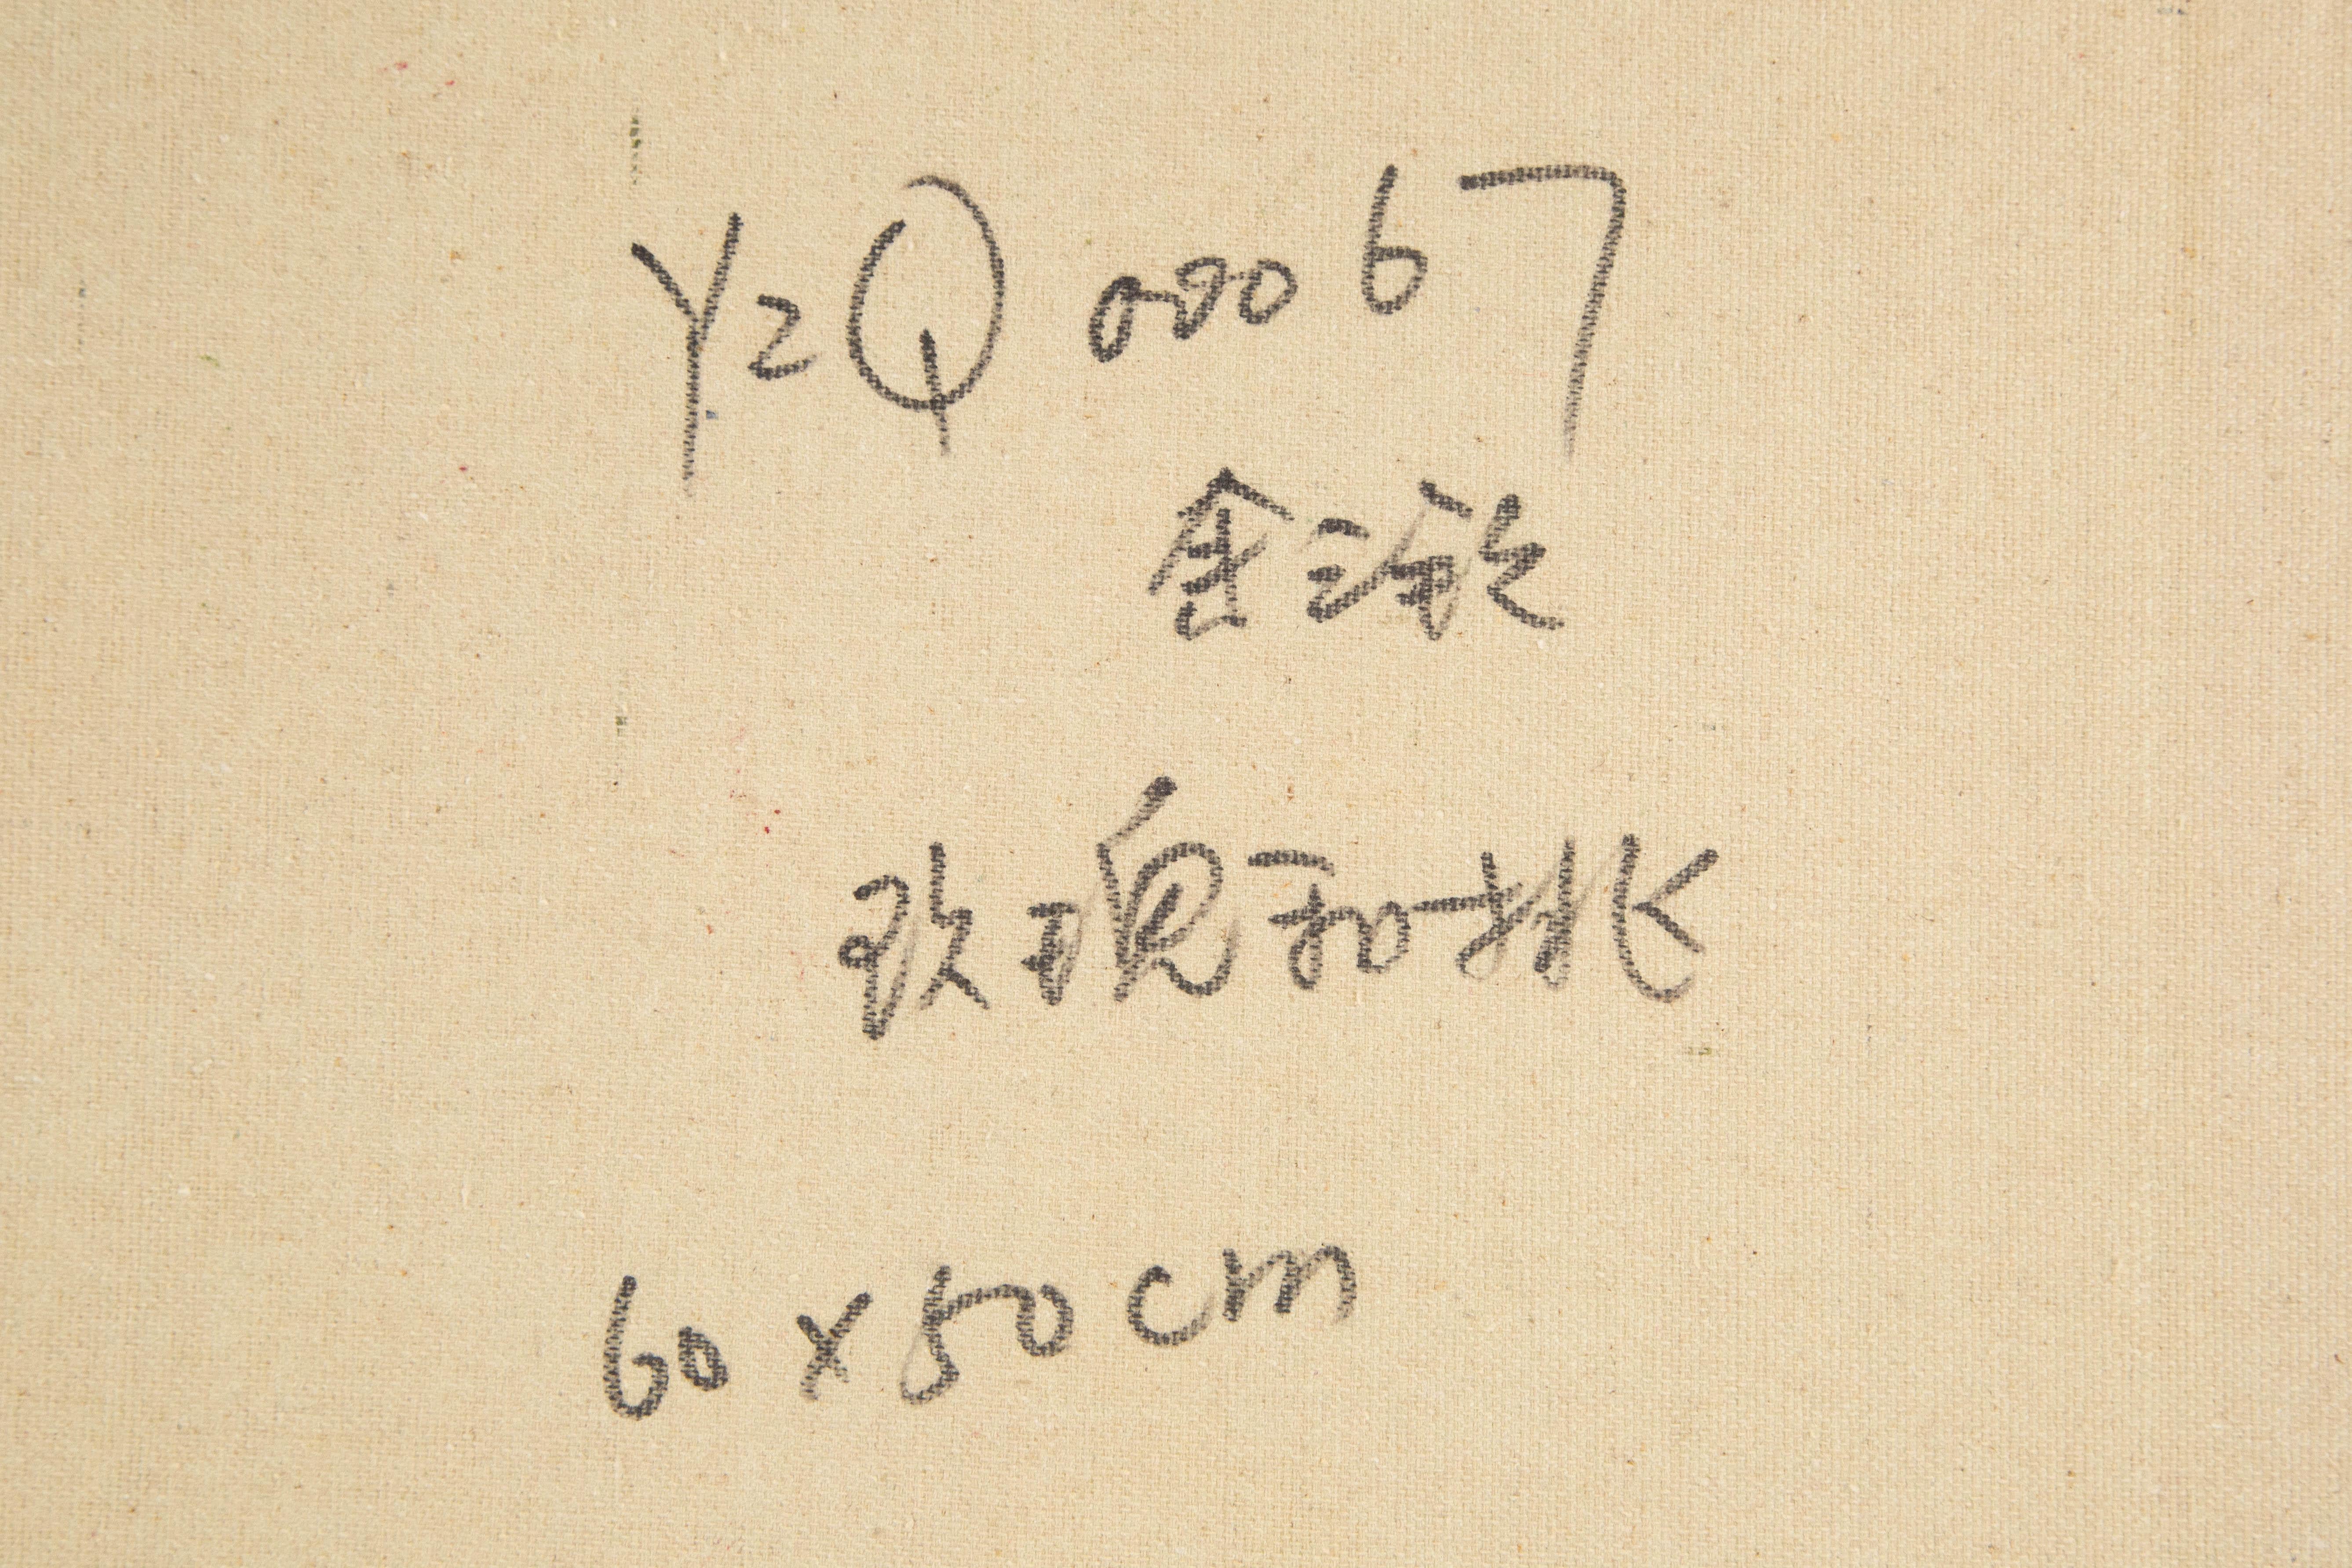 YzQ 00067
玫瑰和桃
60 x 50 cm